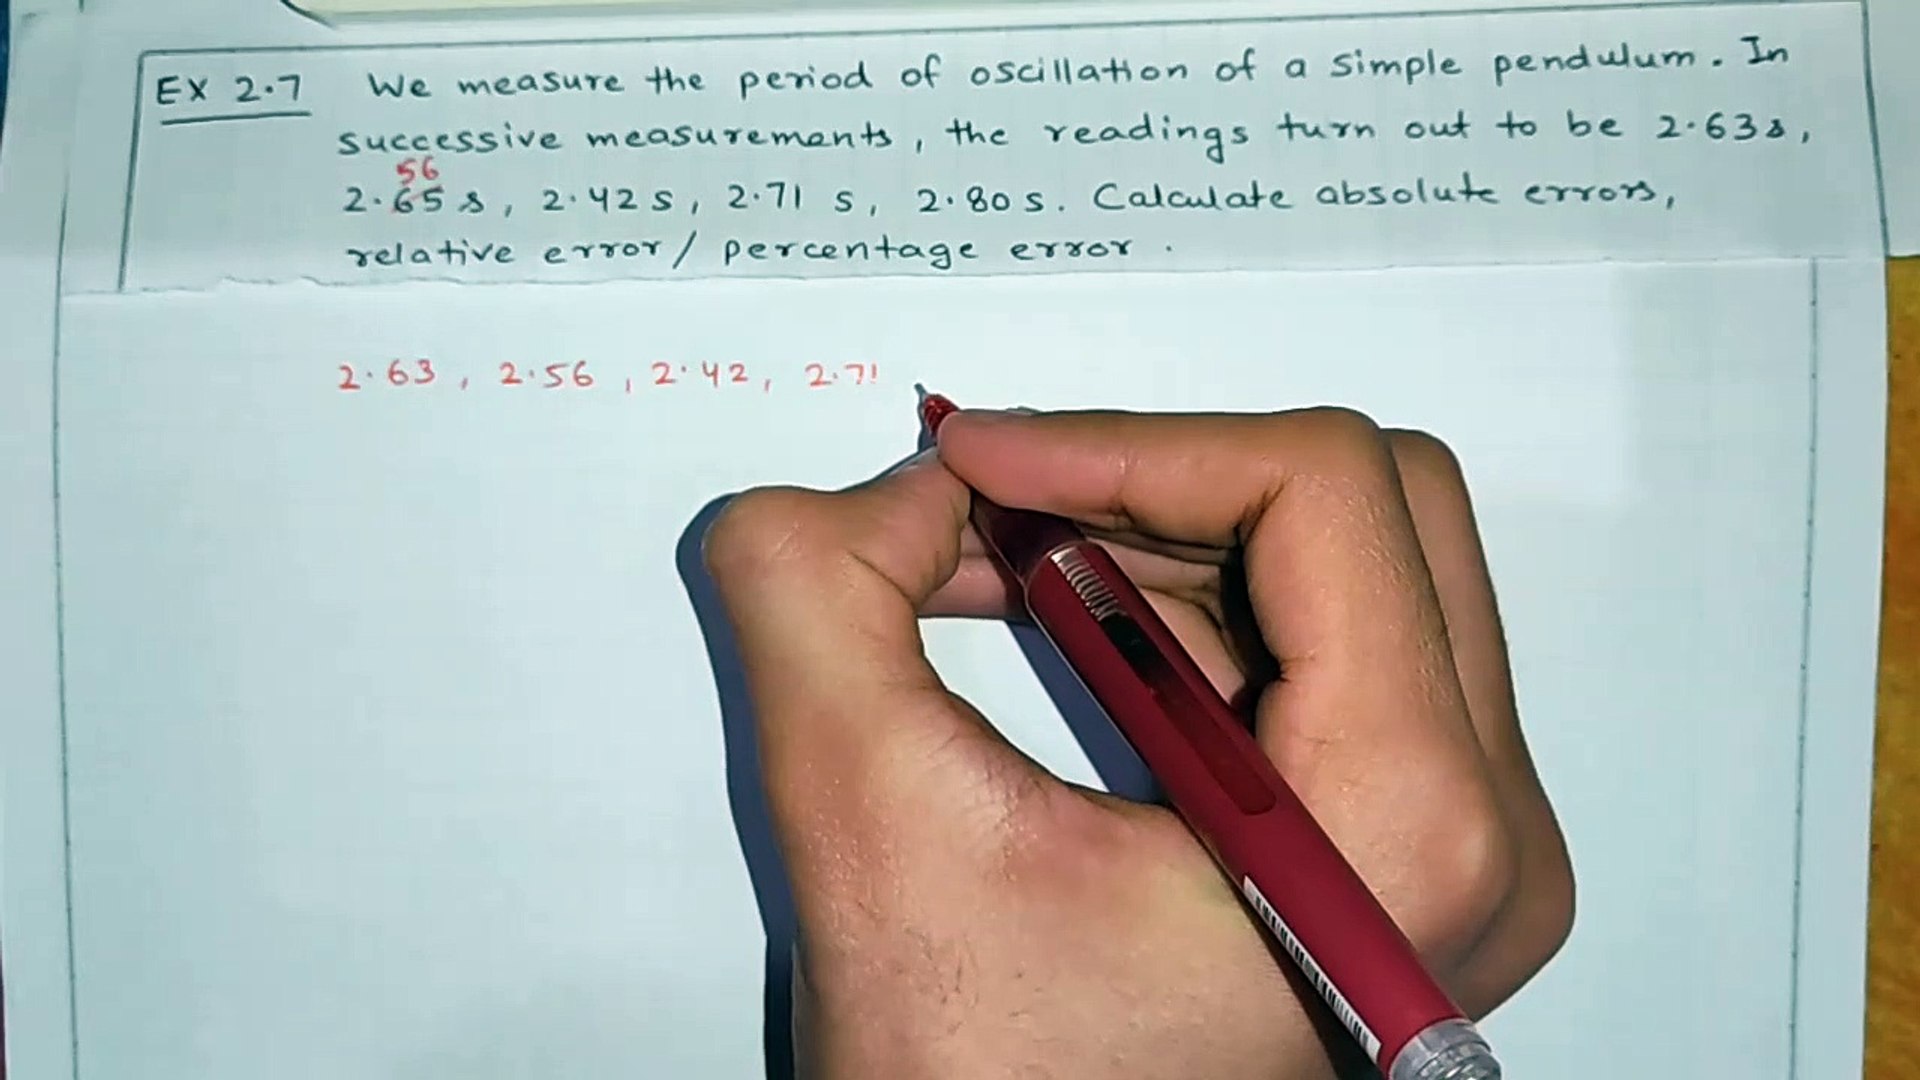 EX 2.7 We measure the period of oscillation of a simple pendulum. In
successive measurements, the readings turn out to be 2.63s,
56
2.65 s, 2.42 s, 2.71 s, 2.80 s. Calculate absolute errors,
relative error/ percentage error.
2.63, 2.56, 2.42, 2.71